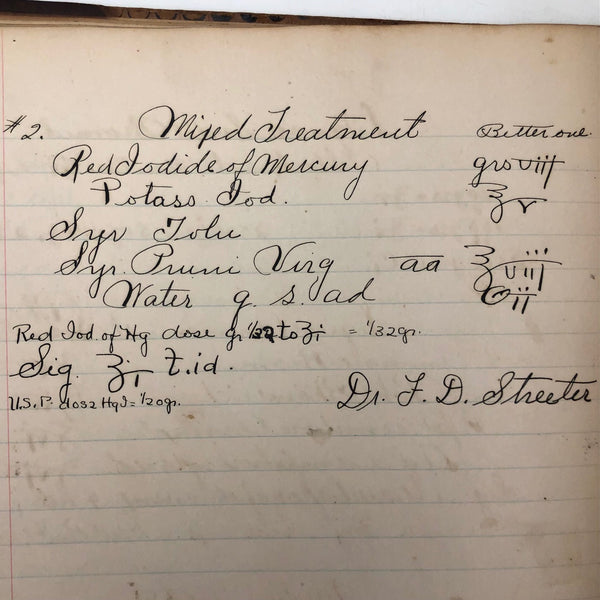 #2. Mixed Treatment Better one.
Red Iodide of Mercury grs viii
Potass. Iod. ʒv
Syr Tolu
Syr. Pruni Virg aa ʒviii
Water q. s. ad Oii
Red Iod. of Hg dose gr 1/32 to ʒi = 1/32 gr.
Sig. ʒi t.id.
U.S.P. dose HgI = 1/20 gr.
Dr. F. D. Streeter